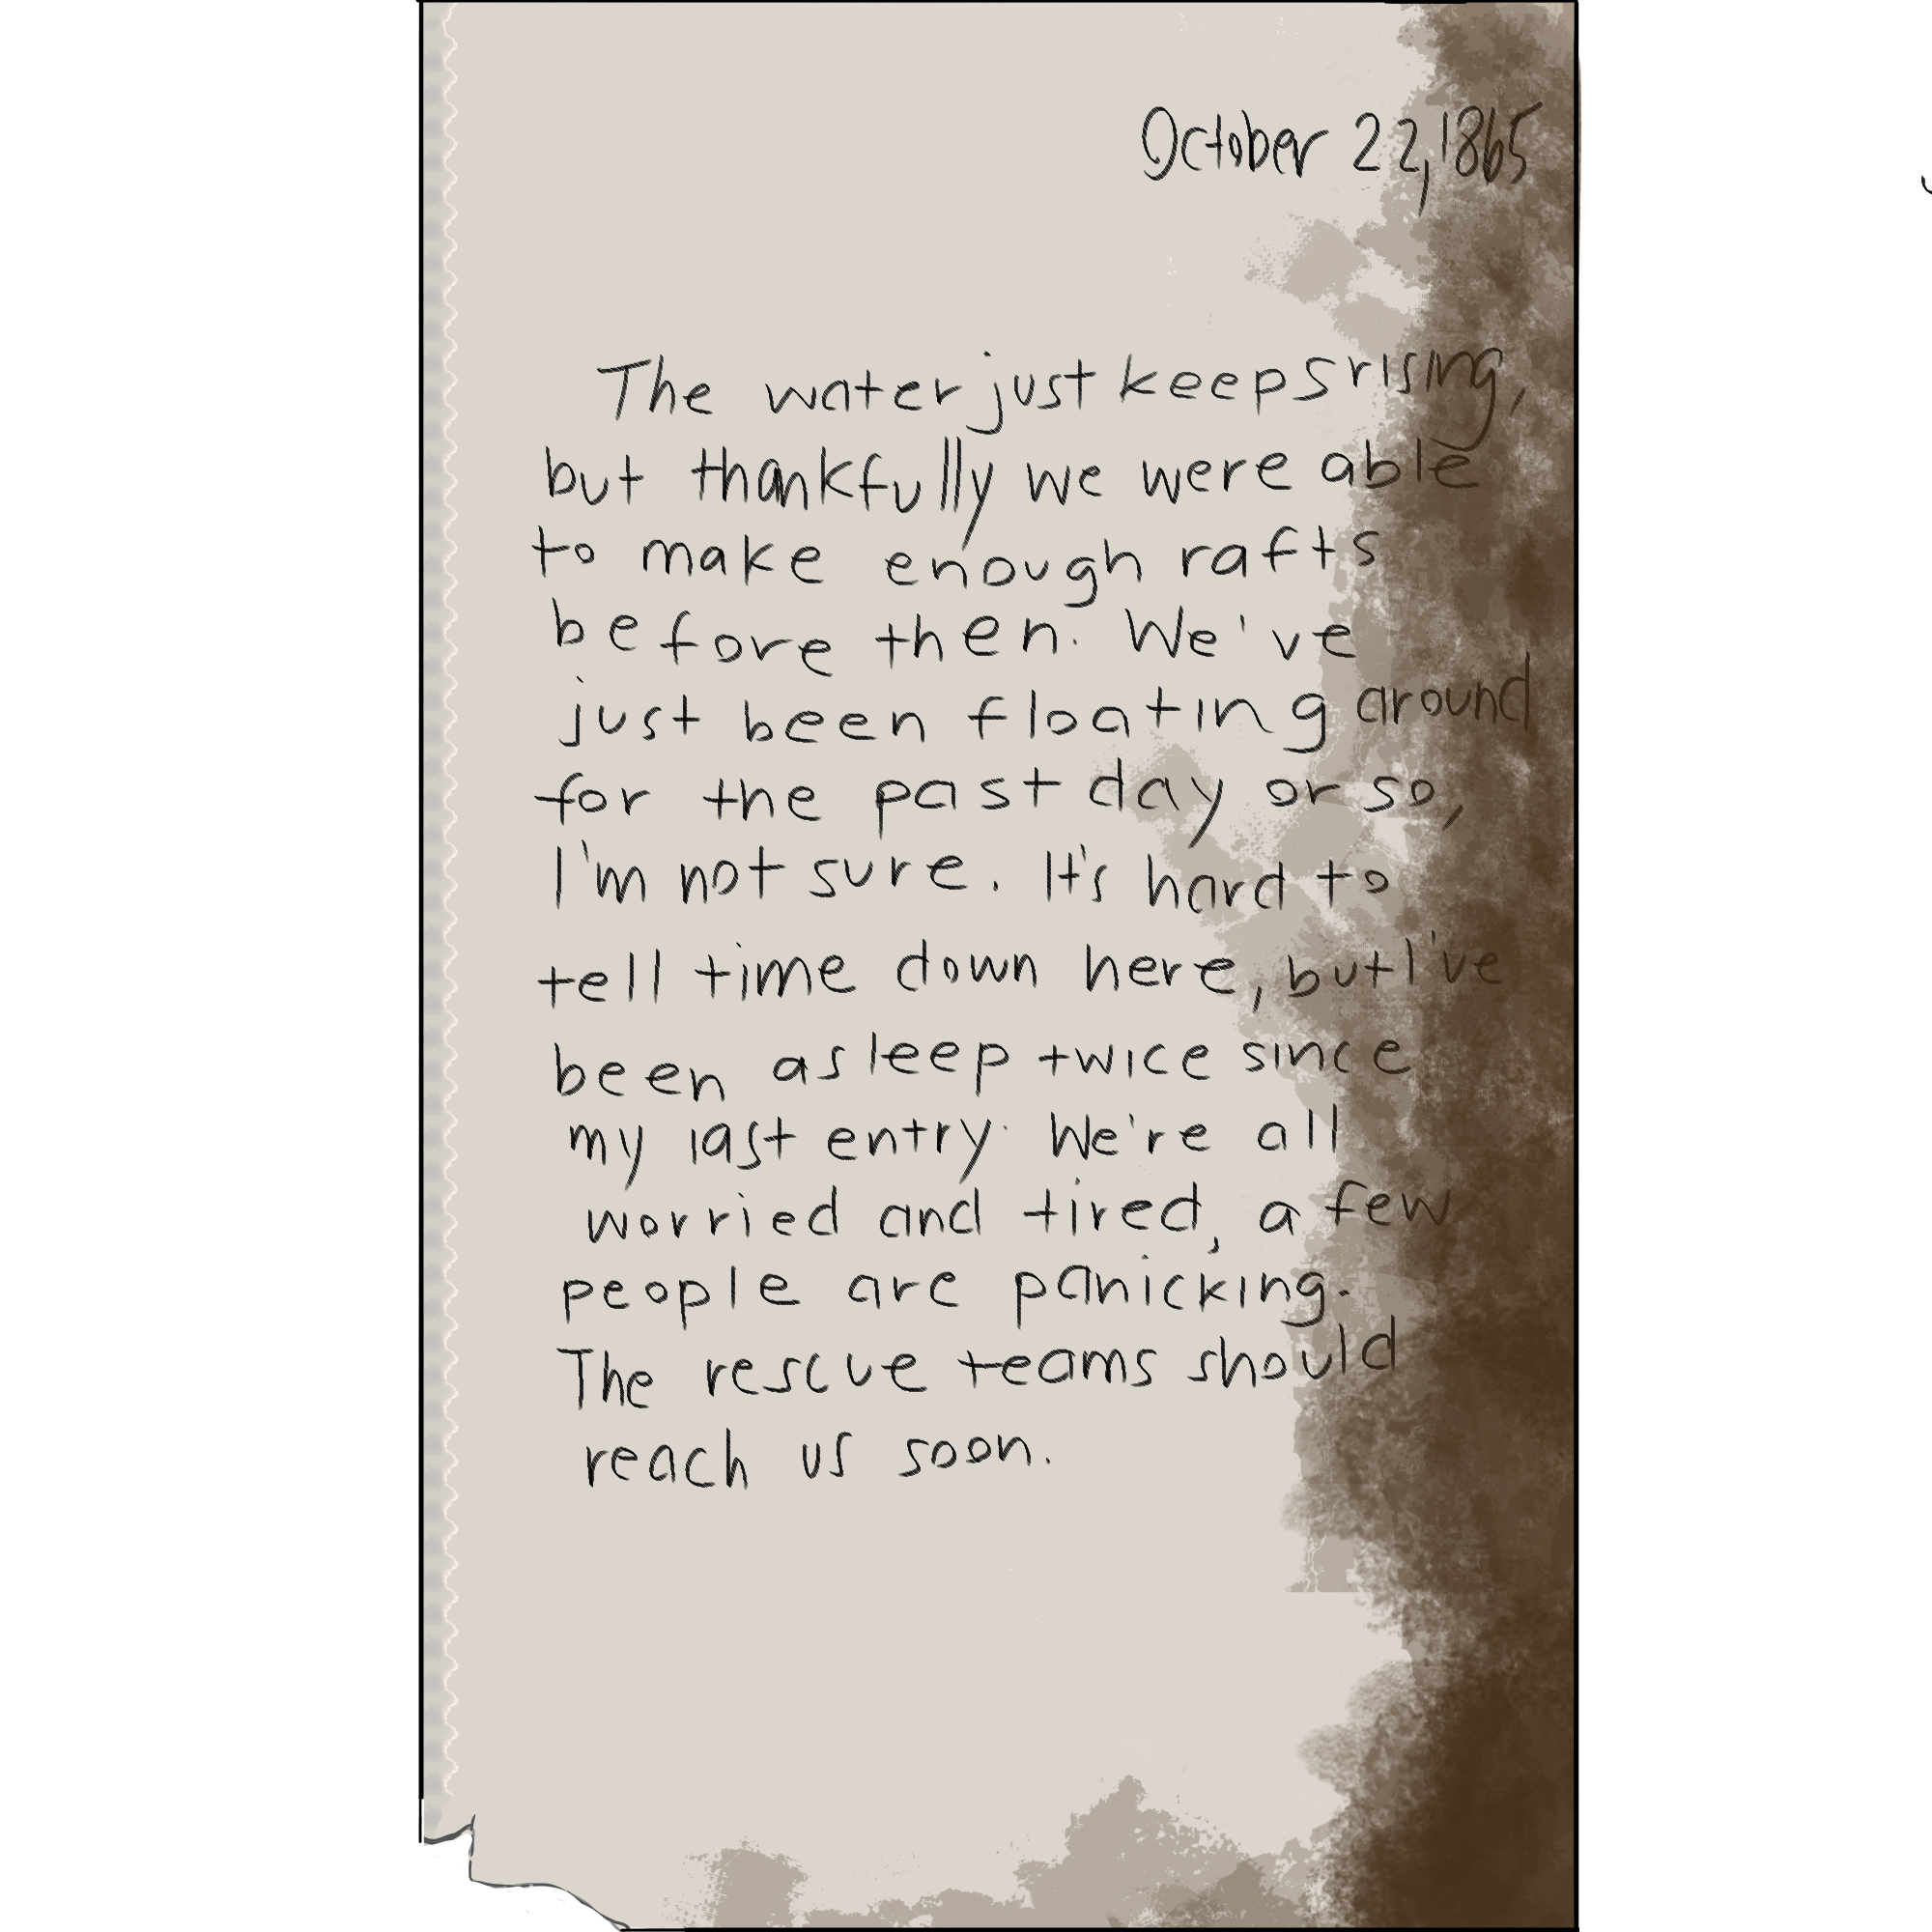 October 22, 1865
The water just keeps rising,
but thankfully we were able
to make enough rafts
before then. We've
just been floating around
for the past day or so,
I'm not sure. It's hard to
tell time down here, but I've
been asleep twice since
my last entry. We're all
worried and tired, a few
people are panicking.
The rescue teams should
reach us soon.